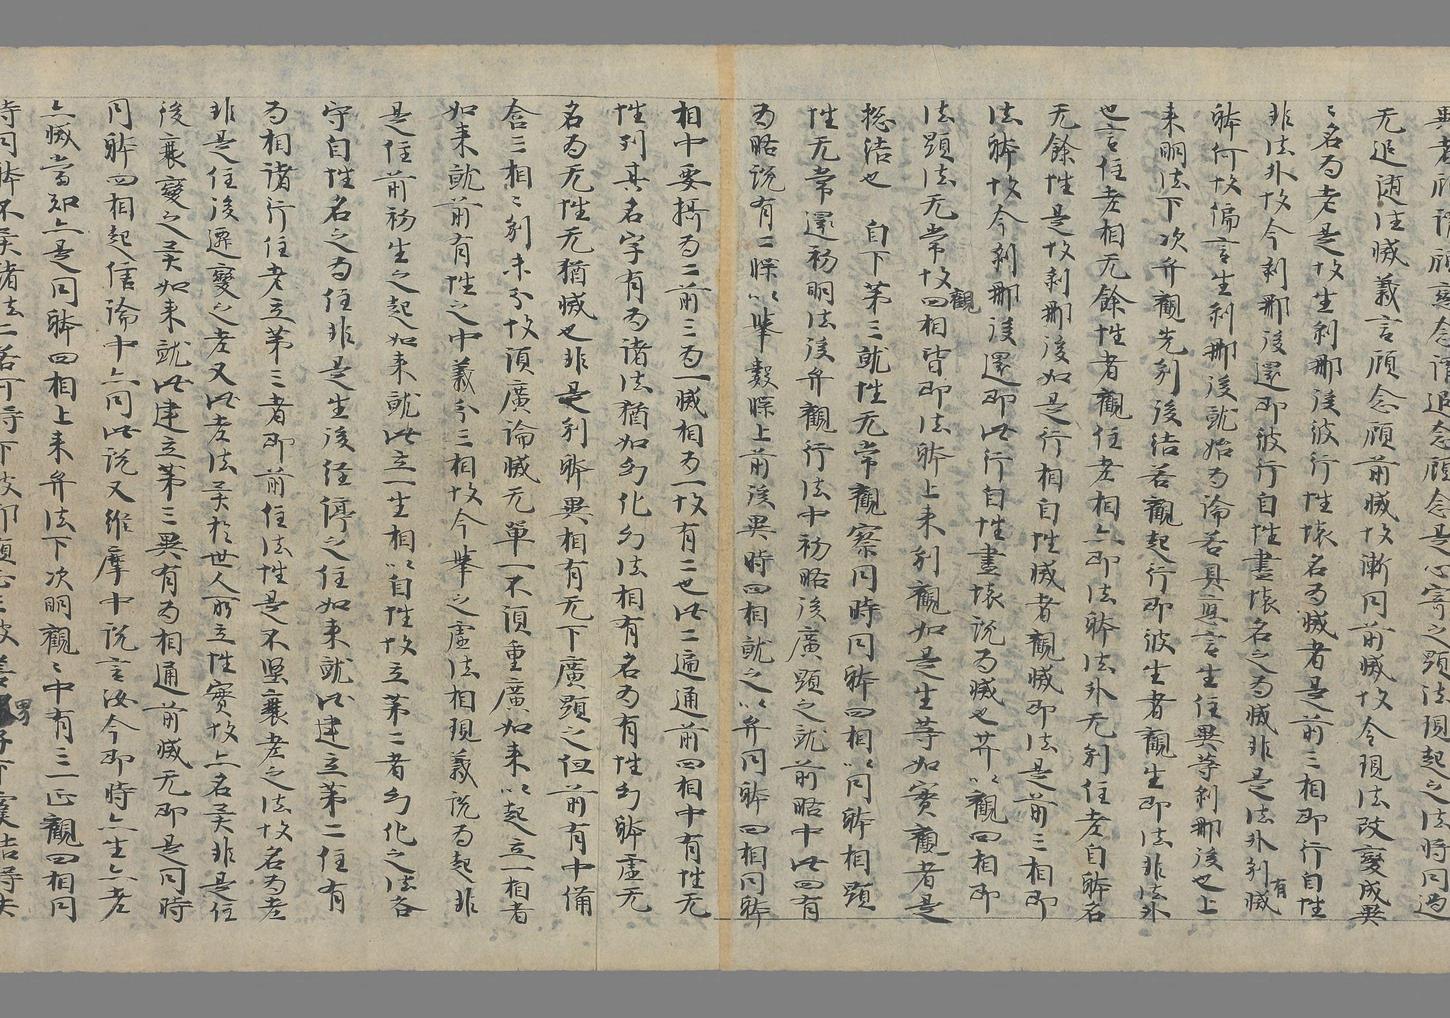 異者顧謂顧
无追逈法滅義言顧念顧前滅故漸同前滅故令現法改變成異
〻名為老是故生刹那後彼行性壞名為滅者是前三相即行自性
非法外故今刹那後還即彼行自性盡壞名之為滅非是法外別有滅
躰何故偏言生刹那後就始為論若具應言生住異等刹那後也上
来明法下次弁觀先列後結若觀起行即彼生者觀生即法非法外
也言住老相无餘性者觀住老相亦即法躰法外无別住老自躰名
无餘性是故刹那後如是行相自性滅者觀滅即法是前三相即
法躰故今刹那後還即此行自性盡壞說為滅也菩以觀四相即
法顯法无常故觀四相皆即法躰上来別觀如是生等如實觀者是
捴結也 自下第三就性无常觀察同時同躰四相以同躰相顯
性无常還初明法後弁觀行法中初略後廣顯之就前略中此四有
為略說有二㨾以舉數㨾上前後異時四相就之以弁同躰四相同躰
相中要攝為二前三為一滅相為一故有二也此二遍通前四相中有性无
性列其名字有為諸法猶如幻化幻法相有名為有性幻躰虛无
名為无性无猶滅也非是別躰異相有无下廣顯之但前有中備
含三相〻別未分故須廣論滅无單一不須重廣如来以起立一相者
如来就前有性之中義分三相故今舉之虛法相現義說為起非
是住前初生之起如来就此立一生相以自性故立第二者幻化之法各
守自性名之為住非是生後經停之住如来就此建立第二住有
為相諸行住老立第三者即前住法性是不堅衰老之法故名為老
非是住後遷變之老又此老法異於世人所立性實故亦名異非是住
後衰變之異如来就此建立第三異有為相通前滅无即是同時
同躰四相起信論中亦同此說又維摩中說言汝今即時亦生亦老
亦滅當知亦是同躰四相上来弁法下次明觀〻中有三一正觀四相同
時同躰不異諸法二若